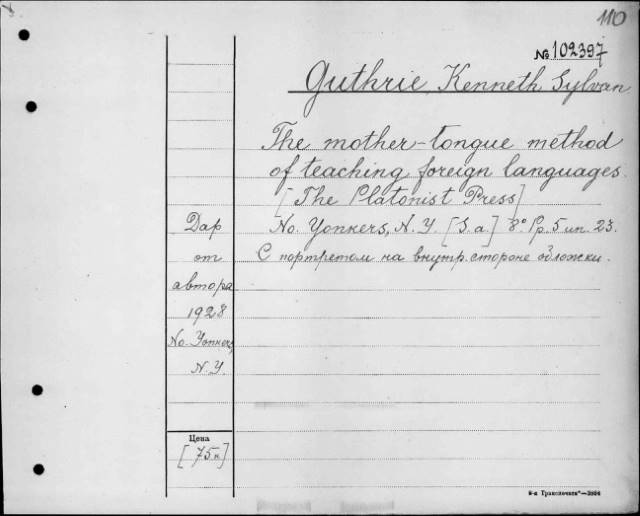 110
№ 102397
Guthrie, Kenneth Sylvan
The mother-tongue method
of teaching foreign languages.
[The Platonist Press]
No. Yonkers, N.Y. [S.a.] 8° Pp. 5 un. 23.
С портретом на внутр. стороне обложки.
Дар
от
автора
1928
No. Yonkers,
N.Y.
Цена
[75 к]